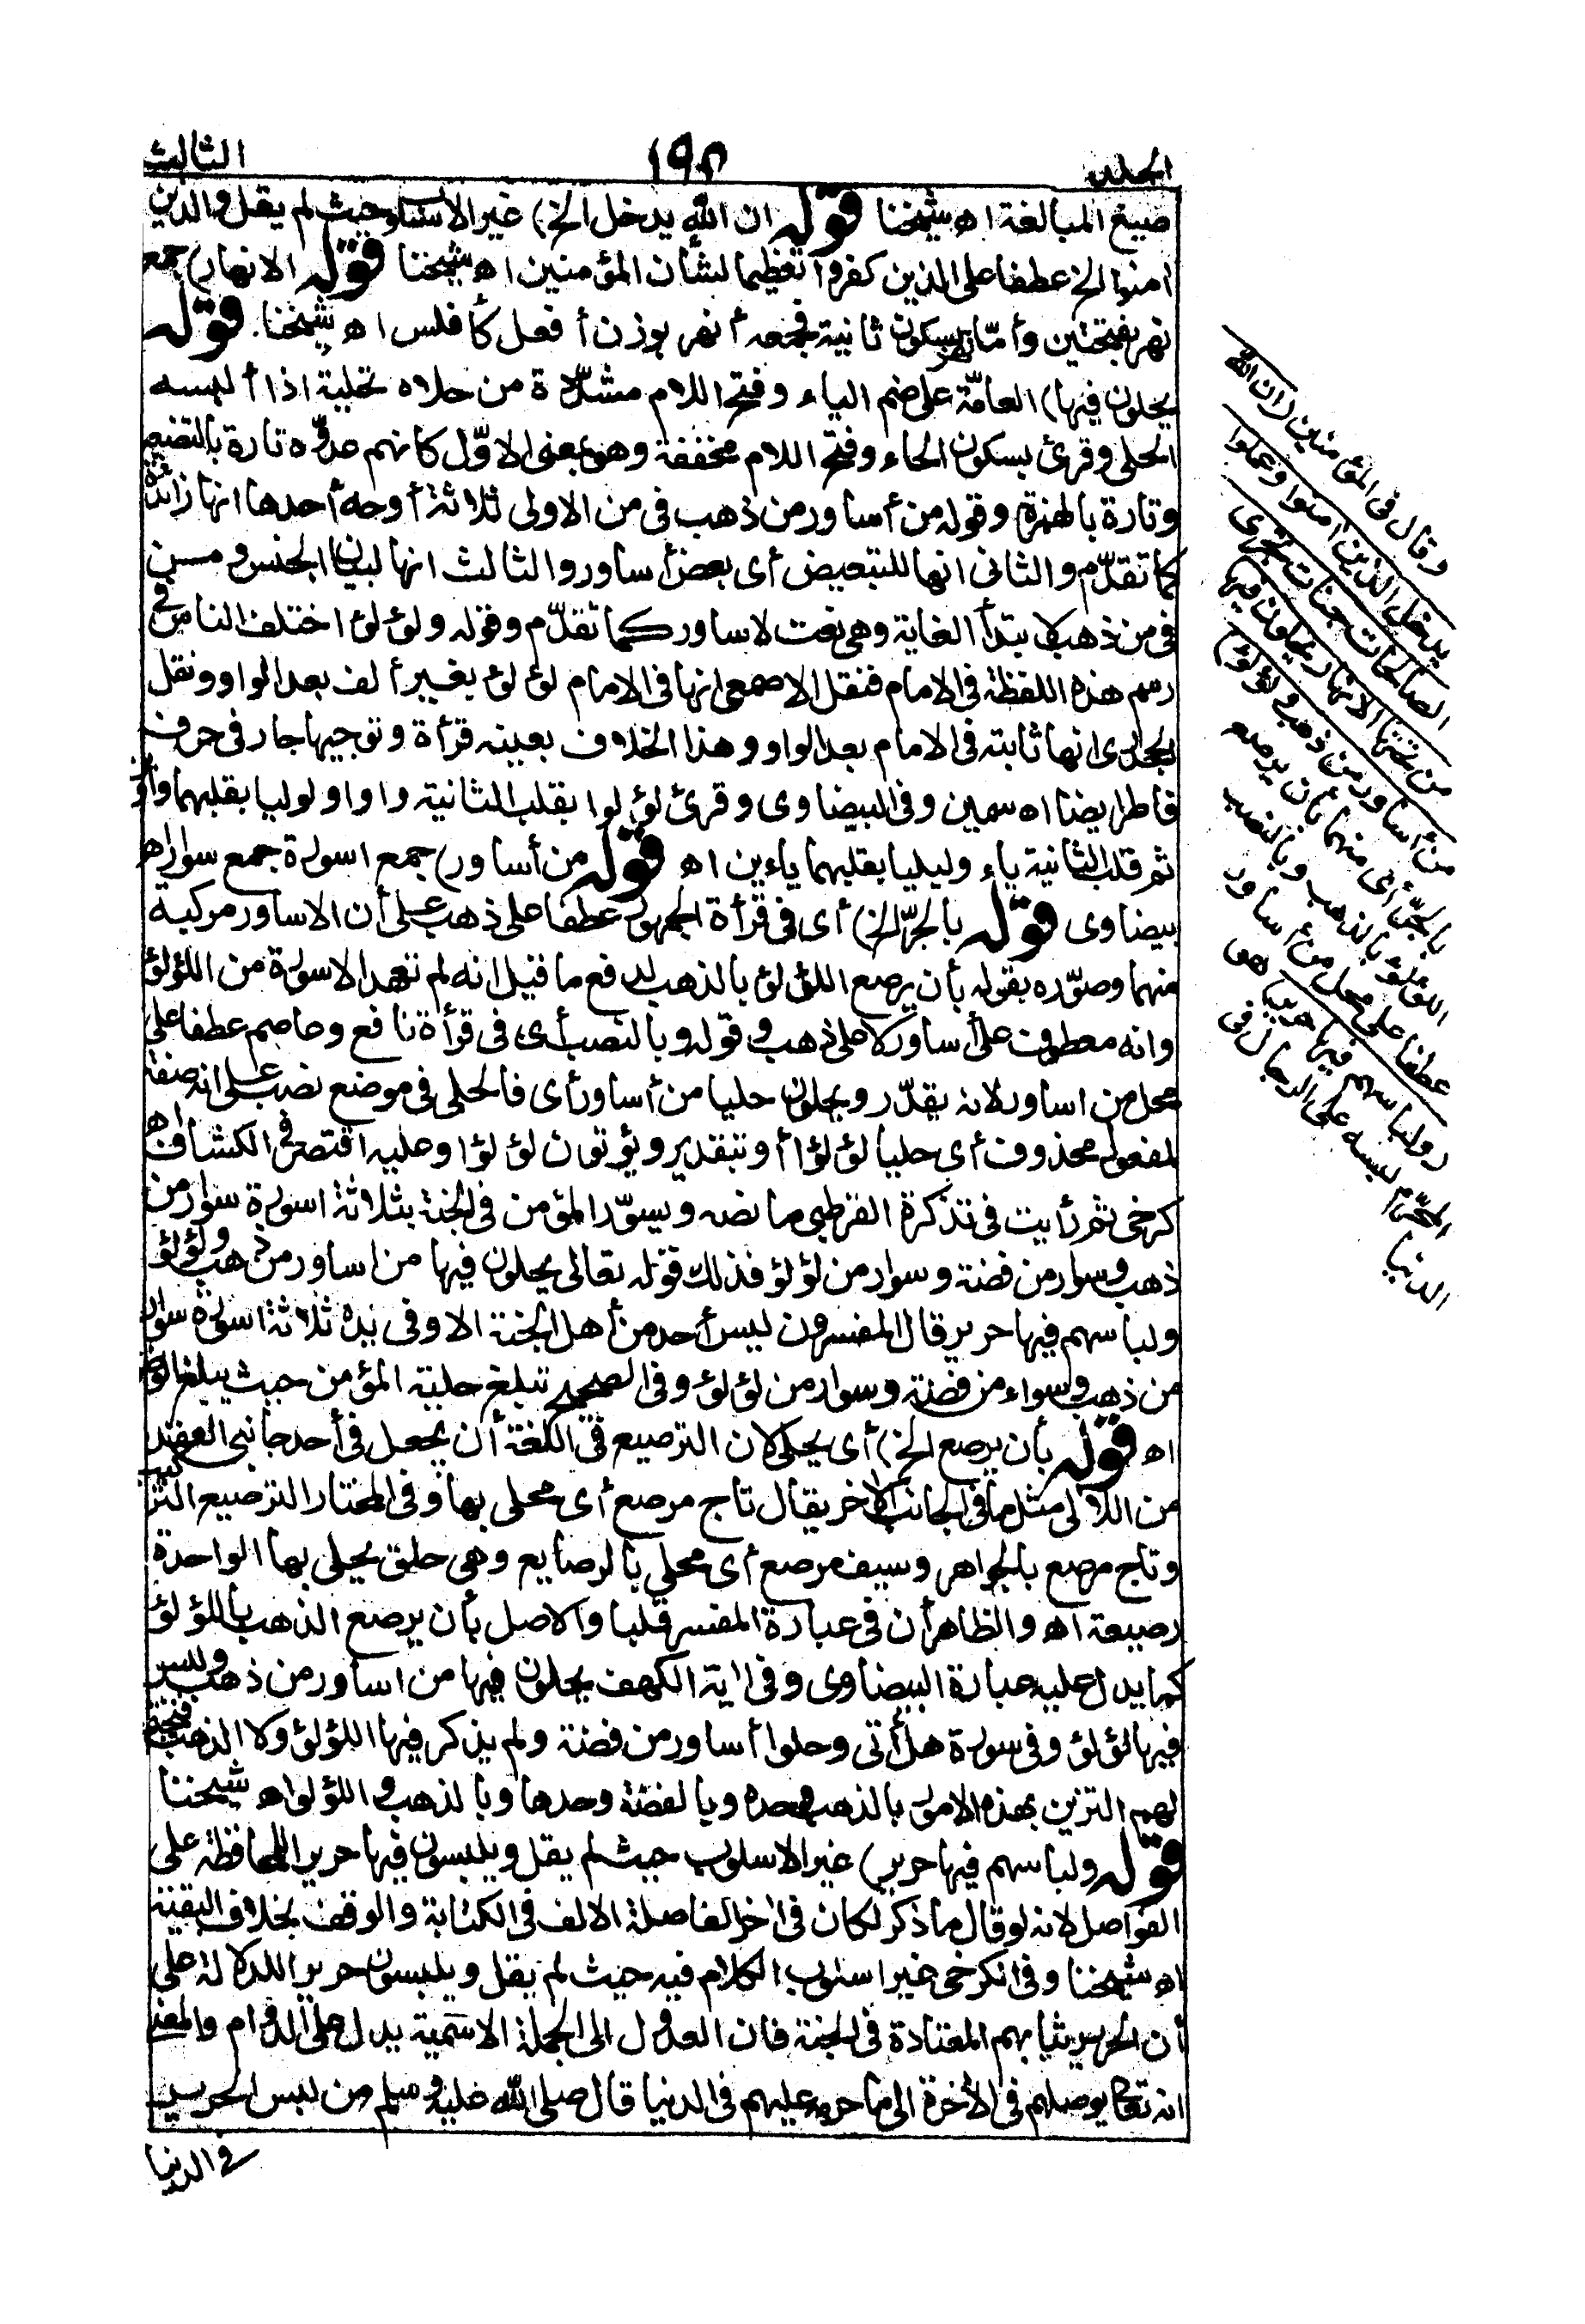 المجلد
١٩٨
الثالث
صيغ المبالغة اه شيخنا قوله ان الله يدخل الخ) غير الاسلوب حيث لم يقل والذين
امنوا الخ عطفا على الذين كفروا تعظيما لشأن المؤمنين اه شيخنا قوله الانهار) جمع
نهر بفتحتين وأمّا نهر بسكون ثانية فجمعه أنهر بوزن أفعل كأفلس اه شيخنا. قوله
يحلون فيها) العامّة على ضم الياء وفتح اللام مشدّدة من حلاه تحلية اذا ألبسه
الحلى وقرئ بسكون الحاء وفتح اللام مخففة وهو بمعنى الاوّل كانهم عدوّه تارة بالتضعيف
وتارة بالهمزة وقوله من أساور من ذهب فى من الاولى ثلاثة أوجه أحدها انها زائدة
كما تقدّم والثانى انها للتبعيض أى بعض أساور والثالث انها لبيان الجنس ومن
فى من ذهب لابتدأ الغاية وهى نعت لاساور كما تقدّم وقوله ولؤلؤ اختلف الناس فى
رسم هذه اللفظة فى الامام فنقل الاصمعى انها فى الامام لؤلؤ بغير ألف بعد الواو ونقل
الجحدرى انها ثابته فى الامام بعد الواو وهذا الخلاف بعينه قرأة وتوجيها جار فى حرف
فاطر ايضا اه سمين وفى البيضاوى وقرئ لؤلوا بقلب الثانية واوا ولوليا بقلبهما واوين
ثم قلب الثانية ياء وليليا بقلبهما ياءين اه قوله من أساور) جمع اسورة جمع سوار اه
بيضاوى قوله بالجرّ الخ) أى فى قرأة الجمهور عطفا على ذهب على أن الاساور مركبة
منهما وصوّره بقوله بأن يرصع اللؤلؤ بالذهب لدفع ما قيل انه لم تعهد الاسورة من اللؤلؤ
وانه معطوف على أساور لا على ذهب وقوله وبالنصب أى فى قرأة نافع وعاصم عطفا على
محل من اساور لانه يقدّر ويحلون حليا من أساور أى فالحلى فى موضع نصب على انه صفة
لمفعول محذوف أى حليا لؤلؤا أو بتقدير ويؤتون لؤلؤا وعليه اقتصر فى الكشاف اه
كرخى ثم رأيت فى تذكرة القرطبى ما نصه ويسوّر المؤمن فى الجنة بثلاثة اسورة سوار من
ذهب وسوار من فضة وسوار من لؤلؤ فذلك قوله تعالى يحلون فيها من اساور من ذهب ولؤلؤ
ولباسهم فيها حرير قال المفسرون ليس أحد من أهل الجنة الا وفى يده ثلاثة اسورة سوار
من ذهب وسواء من فضة وسوار من لؤلؤ وفى الصحيح تبلغ حلية المؤمن حيث يبلغ الوضوء
اه قوله بأن يرصع الخ) أى يحلى لان الترصيع فى اللغة أن يجعل فى أحد جانبى العقد
من اللآلى مثل ما فى الجانب الاخر يقال تاج مرصع أى محلى بها وفى المختار الترصيع التركيب
وتاج مرصع بالجواهر وسيف مرصع أى محلى بالرصايع وهى حلق يحلى بها الواحدة
رصيعة اه والظاهر أن فى عبارة المفسر قلبا والاصل بأن يرصع الذهب باللؤلؤ
كما يدل عليه عبارة البيضاوى وفى اٰية الكهف يحلون فيها من اساور من ذهب وليس
فيها لؤلؤ وفى سورة هل أتى وحلوا أساور من فضة ولم يذكر فيها اللؤلؤ ولا الذهب فيجتمع
لهم التزين بهذه الامور بالذهب وحده وبالفضة وحدها وبالذهب واللؤلؤ اه شيخنا
قوله ولباسهم فيها حرير) غير الاسلوب حيث لم يقل ويلبسون فيها حريرا للمحافظة على
الفواصل لانه لو قال ما ذكر لكان فى اٰخر الفاصلة الالف فى الكتابة والوقف بخلاف البقية
اه شيخنا وفى الكرخى غير اسلوب الكلام فيه حيث لم يقل ويلبسون حريرا للدلالة على
أن الحرير ثيابهم المعتادة فى الجنة فان العدول الى الجملة الاسمية يدل على الدوام والمعنى
انه تعالى يوصلهم فى الأخرة الى ما حرمه عليهم فى الدنيا قال صلى الله عليه وسلم من لبس الحرير
فى الدنيا
وقال فى المؤمنين (ان الله
يدخل الذين امنوا وعملوا
الصالحات جنات تجرى
من تحتها الانهار يحلون فيها
من أساور من ذهب ولؤلؤ)
بالجرّ أى منهما بأن يرصع
اللؤلؤ بالذهب وبالنصب
عطفا على محل من أساور
(ولباسهم فيها حرير) هو
المحرّم لبسه على الرجال فى
الدنيا